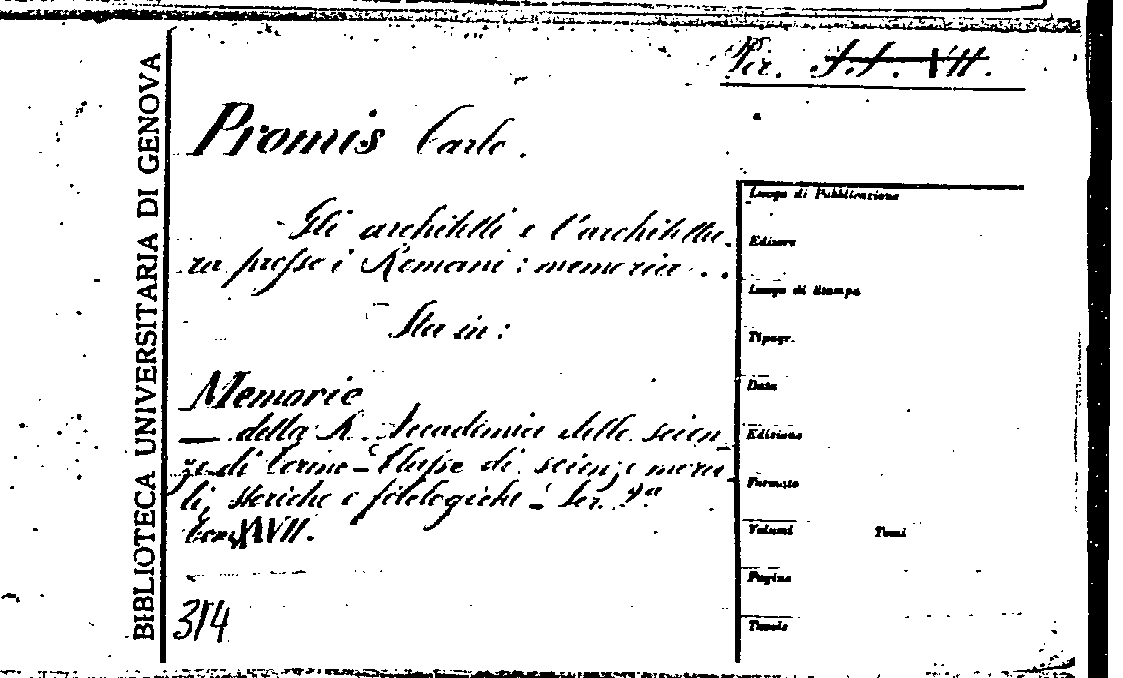 Per. S.S. XII.
BIBLIOTECA UNIVERSITARIA DI GENOVA
Promis Carlo.
Gli architetti e l'architettu-
ra presso i Romani: memoria . .
Sta in:
Memorie
— della R. Accademia delle scien-
ze di Torino - Classe di scienze mora-
li, storiche e filologiche - Ser. 2a
Tom. XXVII.
314
Luogo di Pubblicazione
Editore
Luogo di Stampa
Tipogr.
Data
Edizione
Formato
Volumi Tomi
Pagine
Tavole